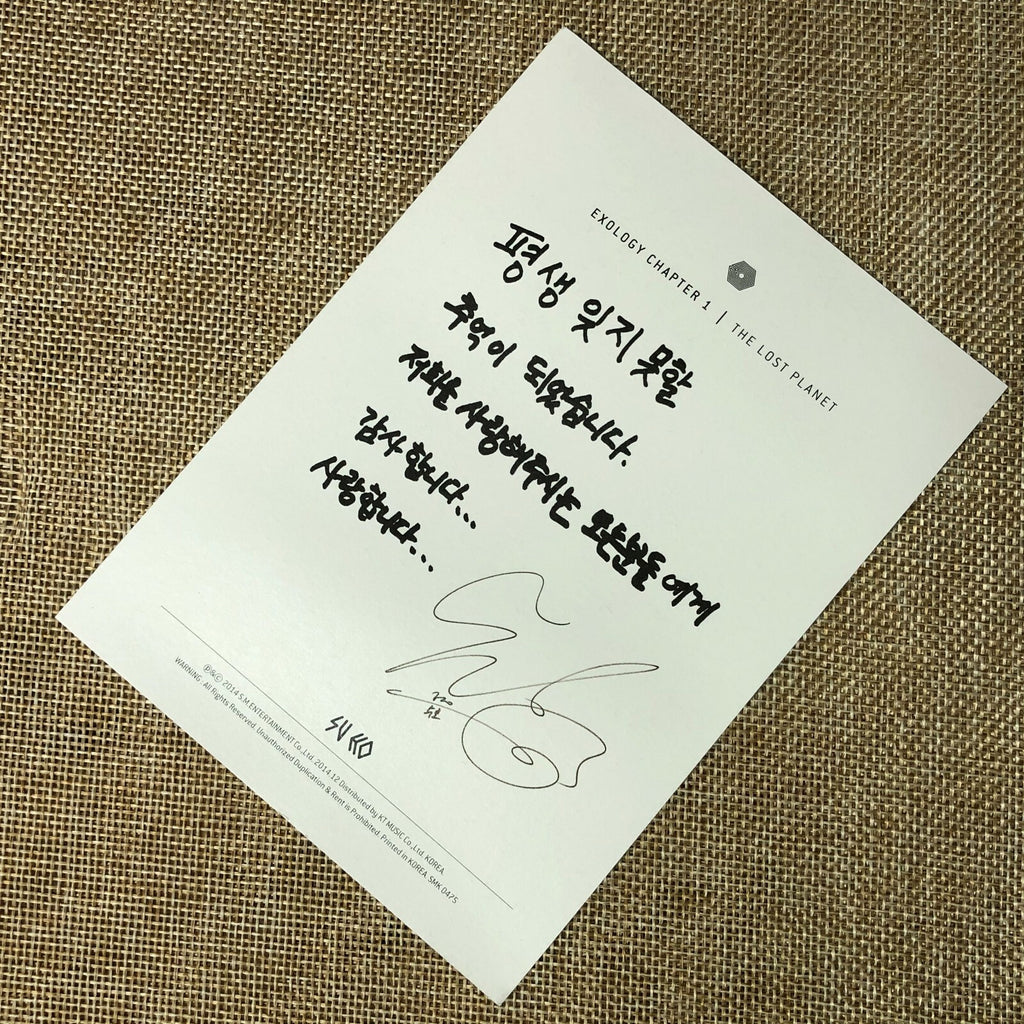 EXOLOGY CHAPTER 1 | THE LOST PLANET
평생 잊지 못할
추억이 되었습니다.
저희를 사랑해주시는 모든분들에게
감사합니다...
사랑합니다...
SUHO
℗&© 2014 S.M.ENTERTAINMENT Co.,Ltd. 2014.12 Distributed by KT MUSIC Co.,Ltd. KOREA.
WARNING : All Rights Reserved. Unauthorized Duplication & Rent is Prohibited. Printed in KOREA. SMK 0475